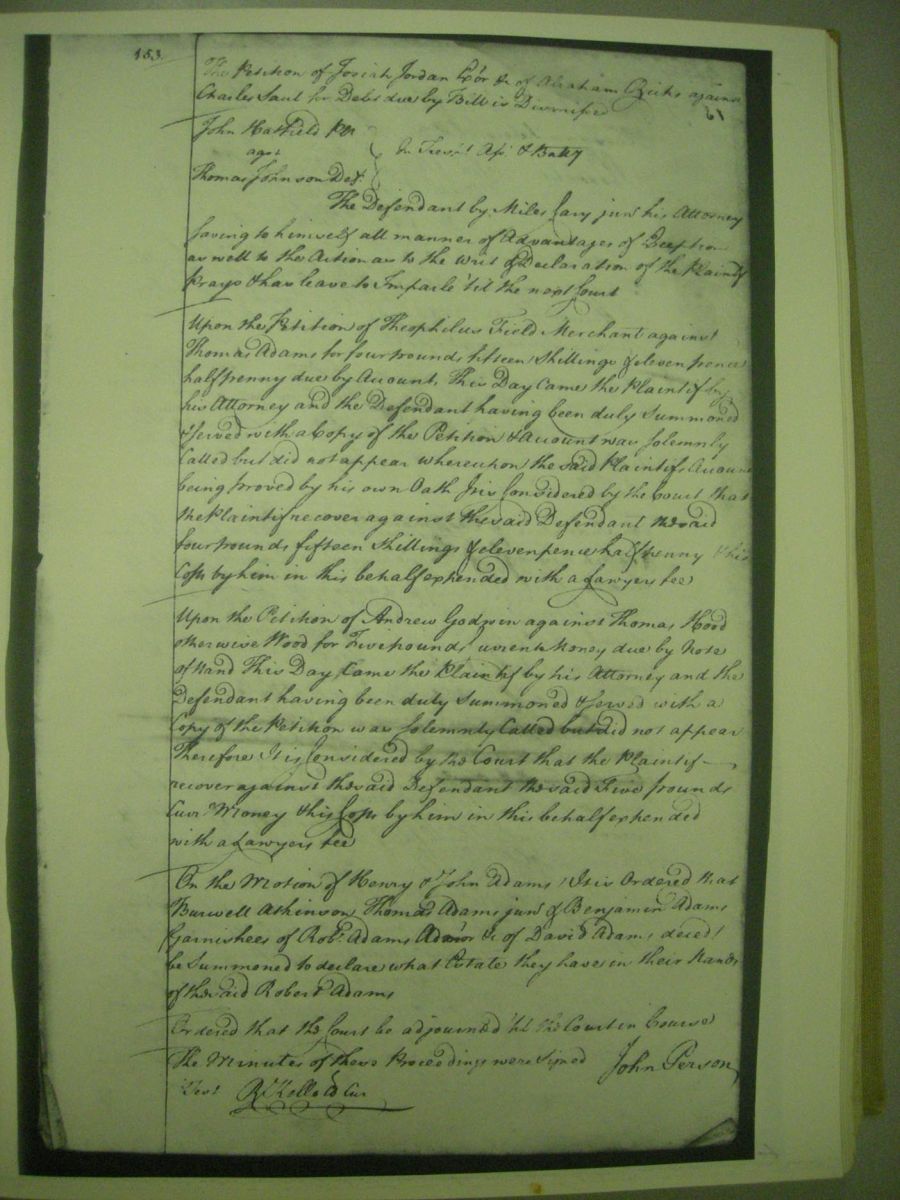 153.
The Petition of Josiah Jordan Exōr &c of Abraham Ricks against
Charles Saul for Debt due by Bill is Diverified
61
John Hatfield Plt
agst
Thomas Johnson Deft
In Tresst Asst & Batty
The Defendant by Miles Cary junr his Attorney
Saving to himself all manner of Advantages of Exception
as well to the Action as to the Writ & Declaration of the Plaintif
Prays & has leave to Imparle 'til the next Court
Upon the Petition of Theophilus Field Merchant against
Thomas Adams for four pounds fifteen Shillings & eleven pence
halfpenny due by Account, This Day Came the Plaintif by
his Attorney and the Defendant having been duly Summoned
& Served with a Copy of the Petition & Account was Solemnly
Called but did not appear whereupon the said Plaintifs Account
being proved by his own Oath It is Considered by the Court that
the Plaintif recover against the said Defendant the said
four pounds fifteen Shillings & eleven pence halfpenny & his
Costs by him in this behalf expended with a Lawyers fee
Upon the Petition of Andrew Godwin against Thomas Hood
otherwise Wood for Five pounds Current Money due by Note
of Hand This Day Came the Plaintif by his Attorney and the
Defendant having been duly Summoned & Served with a
Copy of the Petition was Solemnly Called but did not appear
Therefore It is Considered by the Court that the Plaintif
recover against the said Defendant the said Five pounds
Curr. Money & his Costs by him in this behalf expended
with a Lawyers fee
On the Motion of Henry & John Adams It is Ordered that
Burwell Atkinson Thomas Adams junr & Benjamin Adams
Garnishees of Robt. Adams Admōr &c of David Adams decd
be Summoned to declare what Estate they have in their Hands
of the said Robert Adams
Ordered that the Court be adjourned 'til the Court in Course
The Minutes of these Proceedings were Signed John Person
Test R Kello Cl Cur